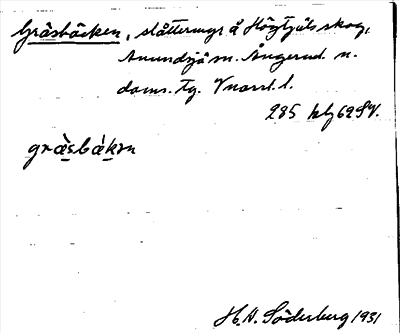 Gräsbäcken, slåttermyr å Högtjäls skog,
Anundsjö sn. Ångerml. n.
doms. Tg. Vnorrl. l.
285 klg 62 SV.
gräsbäkən
H. A. Söderberg 1931